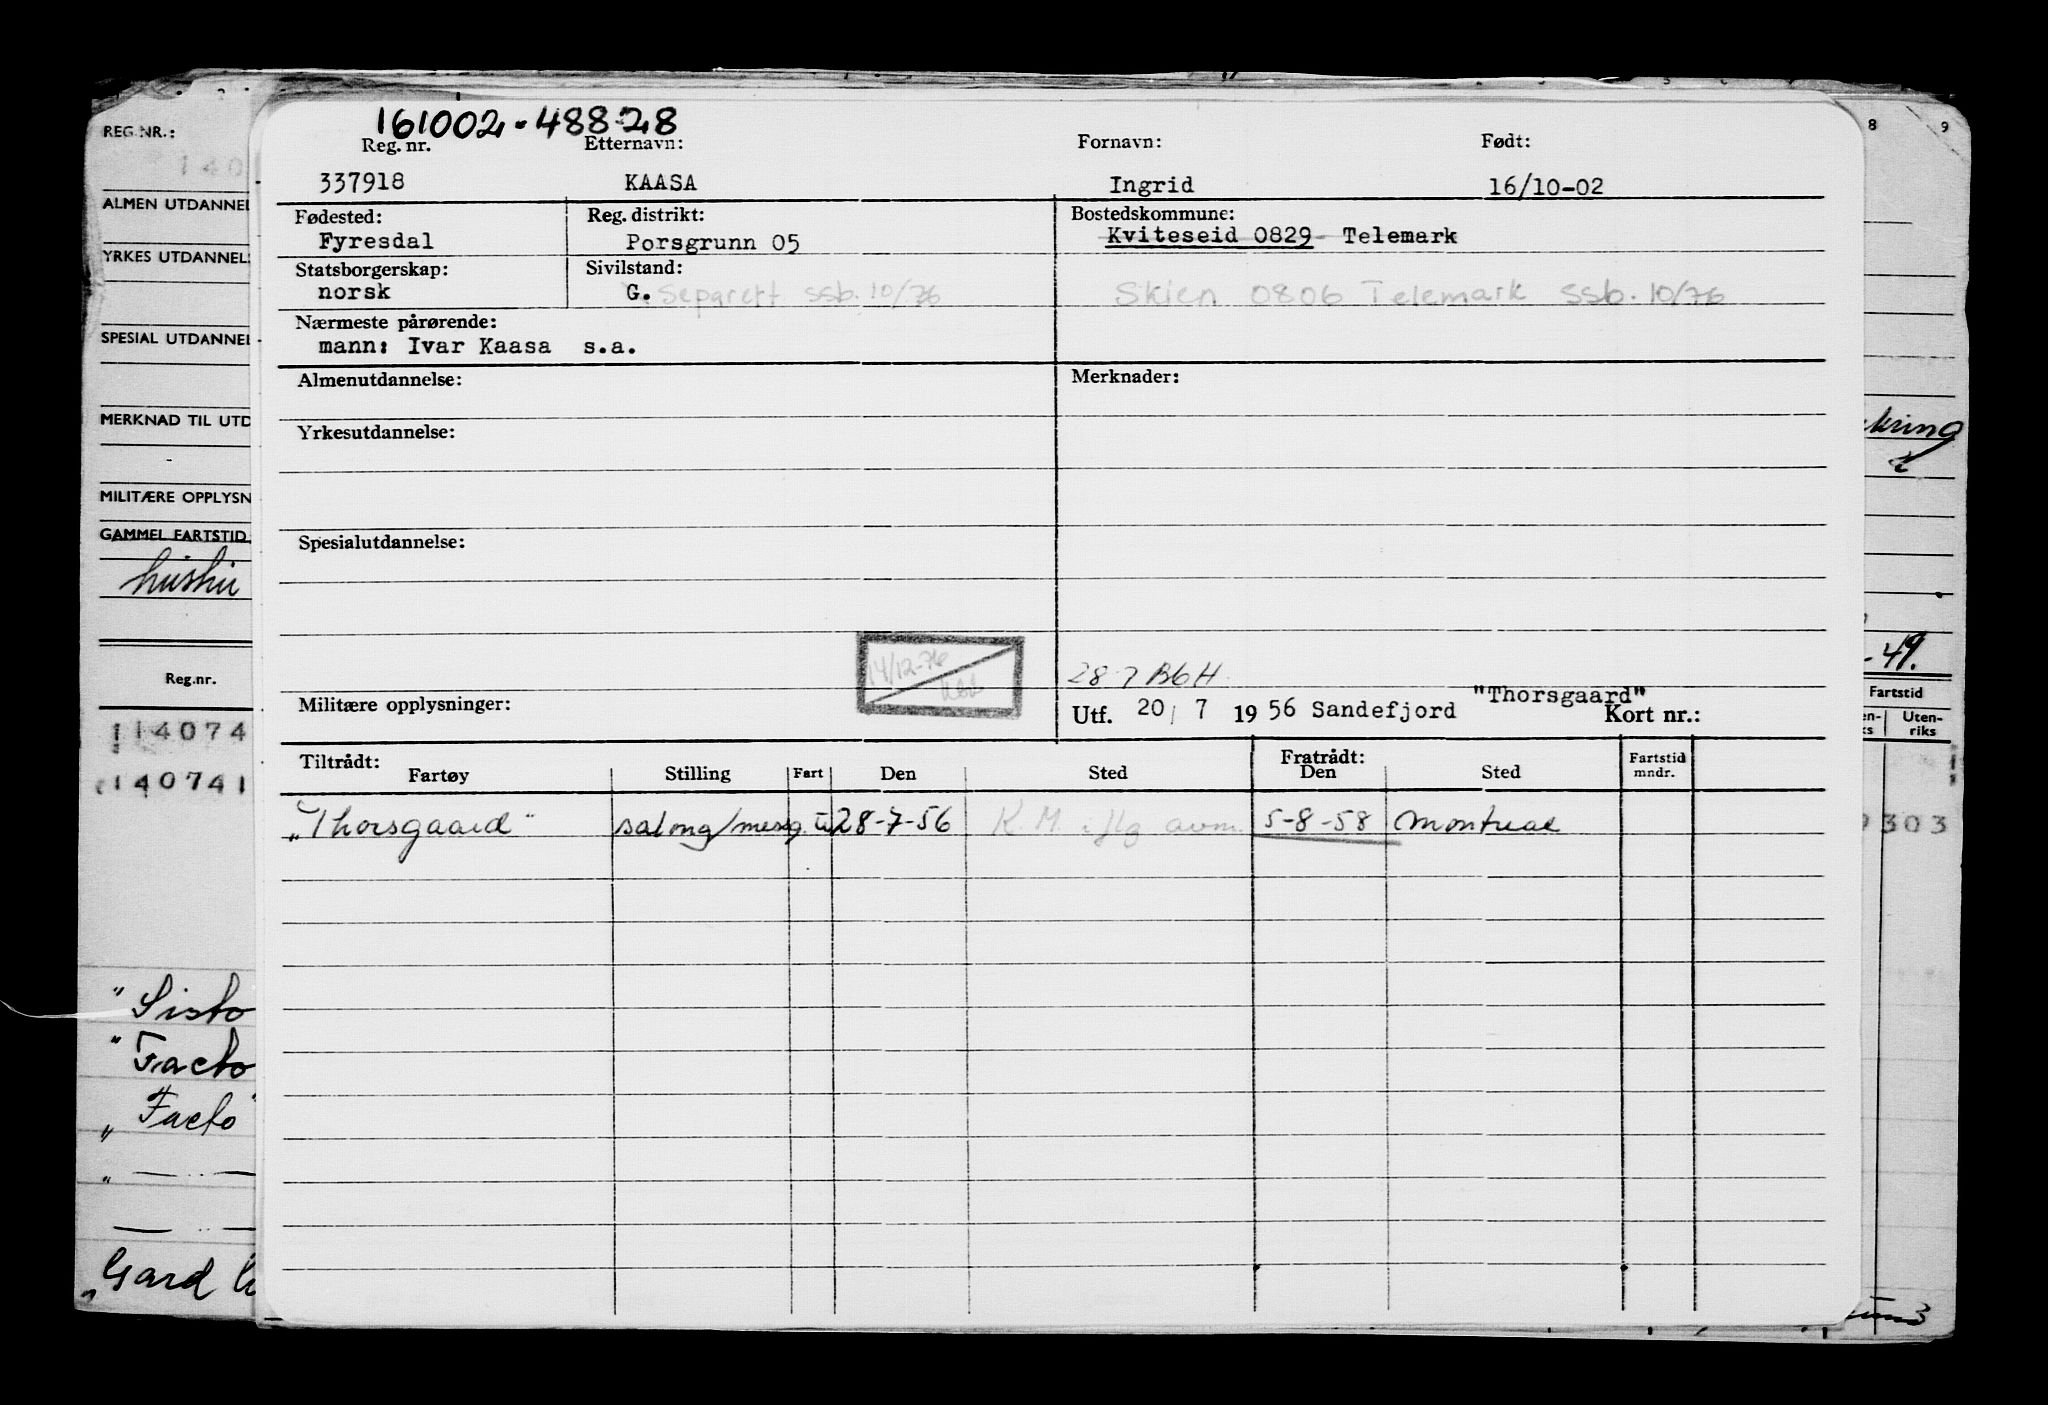 161002-48828
Reg. nr. Etternavn: Fornavn: Født:
337918 KAASA Ingrid 16/10-02
Fødested: Reg. distrikt: Bostedskommune:
Fyresdal Porsgrunn 05 Kviteseid 0829 Telemark
Statsborgerskap: Sivilstand:
norsk G. Separert ssb. 10/76 Skien 0806 Telemark ssb. 10/76
Nærmeste pårørende:
mann: Ivar Kaasa s.a.
Almenutdannelse: Merknader:
Yrkesutdannelse:
Spesialutdannelse:
14/12-76
28 7 B6H
Militære opplysninger: Utf. 20/ 7 19 56 Sandefjord "Thorsgaard" Kort nr.:
Tiltrådt: Fratrådt: Fartstid mndr.
Fartøy Stilling Fart Den Sted Den Sted
"Thorsgaard" salong/messg. U 28-7-56 K.M. iflg avm. 5-8-58 Montreal
REG.NR.:
140
ALMEN UTDANNEL
YRKES UTDANNEL
SPESIAL UTDANNEL
MERKNAD TIL UTD
MILITÆRE OPPLYSN
GAMMEL FARTSTID
Reg.nr.
114074
140741
"Sisto
"Facto
"Facto"
"Gard
8 9
-49.
Fartstid
Uten-
riks
303